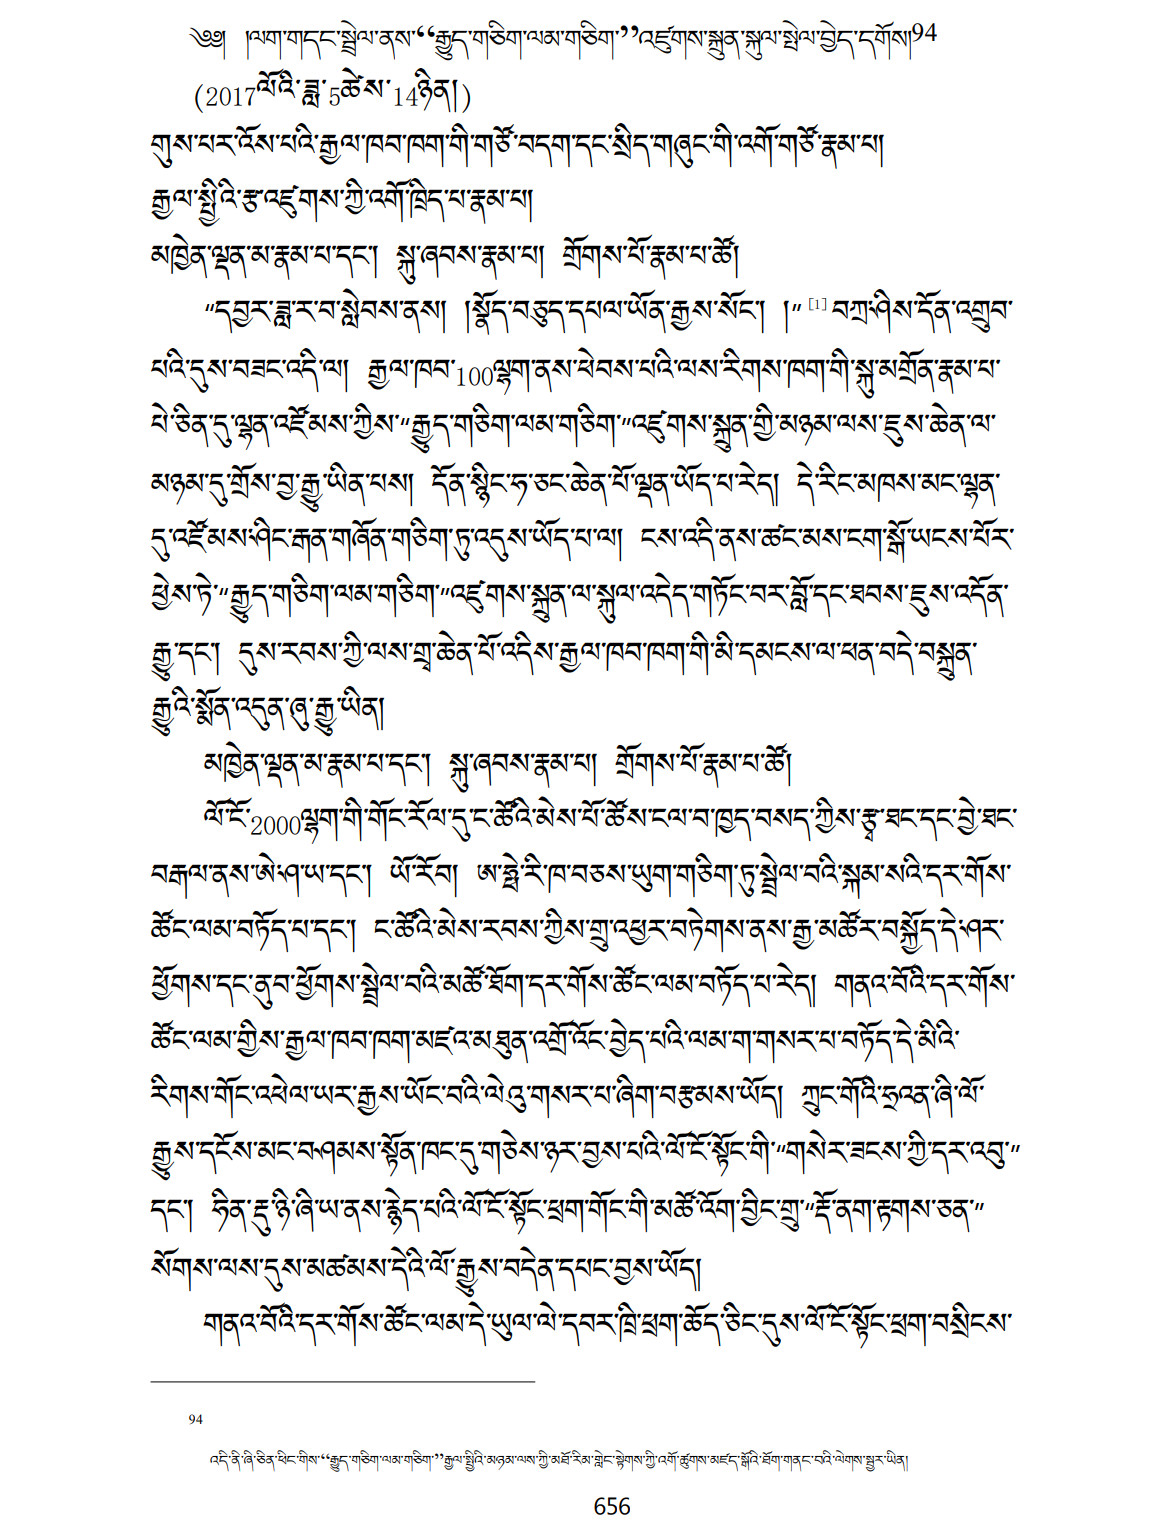 ༄༅། །ལག་གདང་སྦྲེལ་ནས་“རྒྱུད་གཅིག་ལམ་གཅིག་”འཛུགས་སྐྲུན་སྐུལ་སྤེལ་བྱེད་དགོས།94
(2017ལོའི་ཟླ་5ཚེས་14ཉིན།)
གུས་པར་འོས་པའི་རྒྱལ་ཁབ་ཁག་གི་གཙོ་བདག་དང་སྲིད་གཞུང་གི་འགོ་གཙོ་རྣམ་པ།
རྒྱལ་སྤྱིའི་རྩ་འཛུགས་ཀྱི་འགོ་ཁྲིད་པ་རྣམ་པ།
མཁྱེན་ལྡན་མ་རྣམ་པ་དང་། སྐུ་ཞབས་རྣམ་པ། གྲོགས་པོ་རྣམ་པ་ཚོ།
“དབྱར་ཟླ་ར་བ་སླེབས་ནས། །སྣོད་བཅུད་དཔལ་ཡོན་རྒྱས་སོང་། །” [1] བཀྲ་ཤིས་དོན་འགྲུབ་
པའི་དུས་བཟང་འདི་ལ། རྒྱལ་ཁབ་100ལྷག་ནས་ཕེབས་པའི་ལས་རིགས་ཁག་གི་སྐུ་མགྲོན་རྣམ་པ་
པེ་ཅིན་དུ་ལྷན་འཛོམས་ཀྱིས་“རྒྱུད་གཅིག་ལམ་གཅིག་”འཛུགས་སྐྲུན་གྱི་མཉམ་ལས་ཇུས་ཆེན་ལ་
མཉམ་དུ་གྲོས་བྱ་རྒྱུ་ཡིན་པས། དོན་སྙིང་ཧ་ཅང་ཆེན་པོ་ལྡན་ཡོད་པ་རེད། དེ་རིང་མཁས་མང་ལྷན་
དུ་འཛོམས་ཤིང་རྒན་གཞོན་གཅིག་ཏུ་འདུས་ཡོད་པ་ལ། ངས་འདི་ནས་ཚང་མས་ངག་སྒོ་ཡངས་པོར་
ཕྱེས་ཏེ་“རྒྱུད་གཅིག་ལམ་གཅིག་”འཛུགས་སྐྲུན་ལ་སྐུལ་འདེད་གཏོང་བར་བློ་དང་ཐབས་ཇུས་འདོན་
རྒྱུ་དང་། དུས་རབས་ཀྱི་ལས་གྲྭ་ཆེན་པོ་འདིས་རྒྱལ་ཁབ་ཁག་གི་མི་དམངས་ལ་ཕན་བདེ་བསྐྲུན་
རྒྱུའི་སྨོན་འདུན་ཞུ་རྒྱུ་ཡིན།
མཁྱེན་ལྡན་མ་རྣམ་པ་དང་། སྐུ་ཞབས་རྣམ་པ། གྲོགས་པོ་རྣམ་པ་ཚོ།
ལོ་ངོ་2000ལྷག་གི་གོང་རོལ་དུ་ང་ཚོའི་མེས་པོ་ཚོས་ངལ་བ་ཁྱད་བསད་ཀྱིས་རྩྭ་ཐང་དང་བྱེ་ཐང་
བརྒལ་ནས་ཨེ་ཤ་ཡ་དང་། ཡོ་རོབ། ཨ་ཧྥེ་རི་ཁ་བཅས་ཡུག་གཅིག་ཏུ་སྦྲེལ་བའི་སྐམ་སའི་དར་གོས་
ཚོང་ལམ་བཏོད་པ་དང་། ང་ཚོའི་མེས་རབས་ཀྱིས་གྲུ་འཕྱར་བཏེགས་ནས་རྒྱ་མཚོར་བསྐྱོད་དེ་ཤར་
ཕྱོགས་དང་ནུབ་ཕྱོགས་སྦྲེལ་བའི་མཚོ་ཐོག་དར་གོས་ཚོང་ལམ་བཏོད་པ་རེད། གནའ་བོའི་དར་གོས་
ཚོང་ལམ་གྱིས་རྒྱལ་ཁབ་ཁག་མཛའ་མཐུན་འགྲོ་འོང་བྱེད་པའི་ལམ་ག་གསར་པ་བཏོད་དེ་མིའི་
རིགས་གོང་འཕེལ་ཡར་རྒྱས་ཡོང་བའི་ལེའུ་གསར་པ་ཞིག་བརྩམས་ཡོད། ཀྲུང་གོའི་ཧྲའན་ཞི་ལོ་
རྒྱུས་དངོས་མང་བཤམས་སྟོན་ཁང་དུ་གཅེས་ཉར་བྱས་པའི་ལོ་ངོ་སྟོང་གི་“གསེར་ཟངས་ཀྱི་དར་འབུ་”
དང་། ཧིན་རྡུ་ཉི་ཞི་ཡ་ནས་རྙེད་པའི་ལོ་ངོ་སྟོང་ཕྲག་གོང་གི་མཚོ་འོག་བྱིང་གྲུ་“རྡོ་ནག་རྟགས་ཅན་”
སོགས་ལས་དུས་མཚམས་དེའི་ལོ་རྒྱུས་བདེན་དཔང་བྱས་ཡོད།
གནའ་བོའི་དར་གོས་ཚོང་ལམ་དེ་ཡུལ་ལེ་དབར་ཁྲི་ཕྲག་ཆོད་ཅིང་དུས་ལོ་ངོ་སྟོང་ཕྲག་བསྲིངས་
94
འདི་ནི་ཞི་ཅིན་ཕིང་གིས་“རྒྱུད་གཅིག་ལམ་གཅིག་”རྒྱལ་སྤྱིའི་མཉམ་ལས་ཀྱི་མཐོ་རིམ་གླེང་སྟེགས་ཀྱི་འགོ་ཚུགས་མཛད་སྒོའི་ཐོག་གནང་བའི་ལེགས་སྦྱར་ཡིན།
656